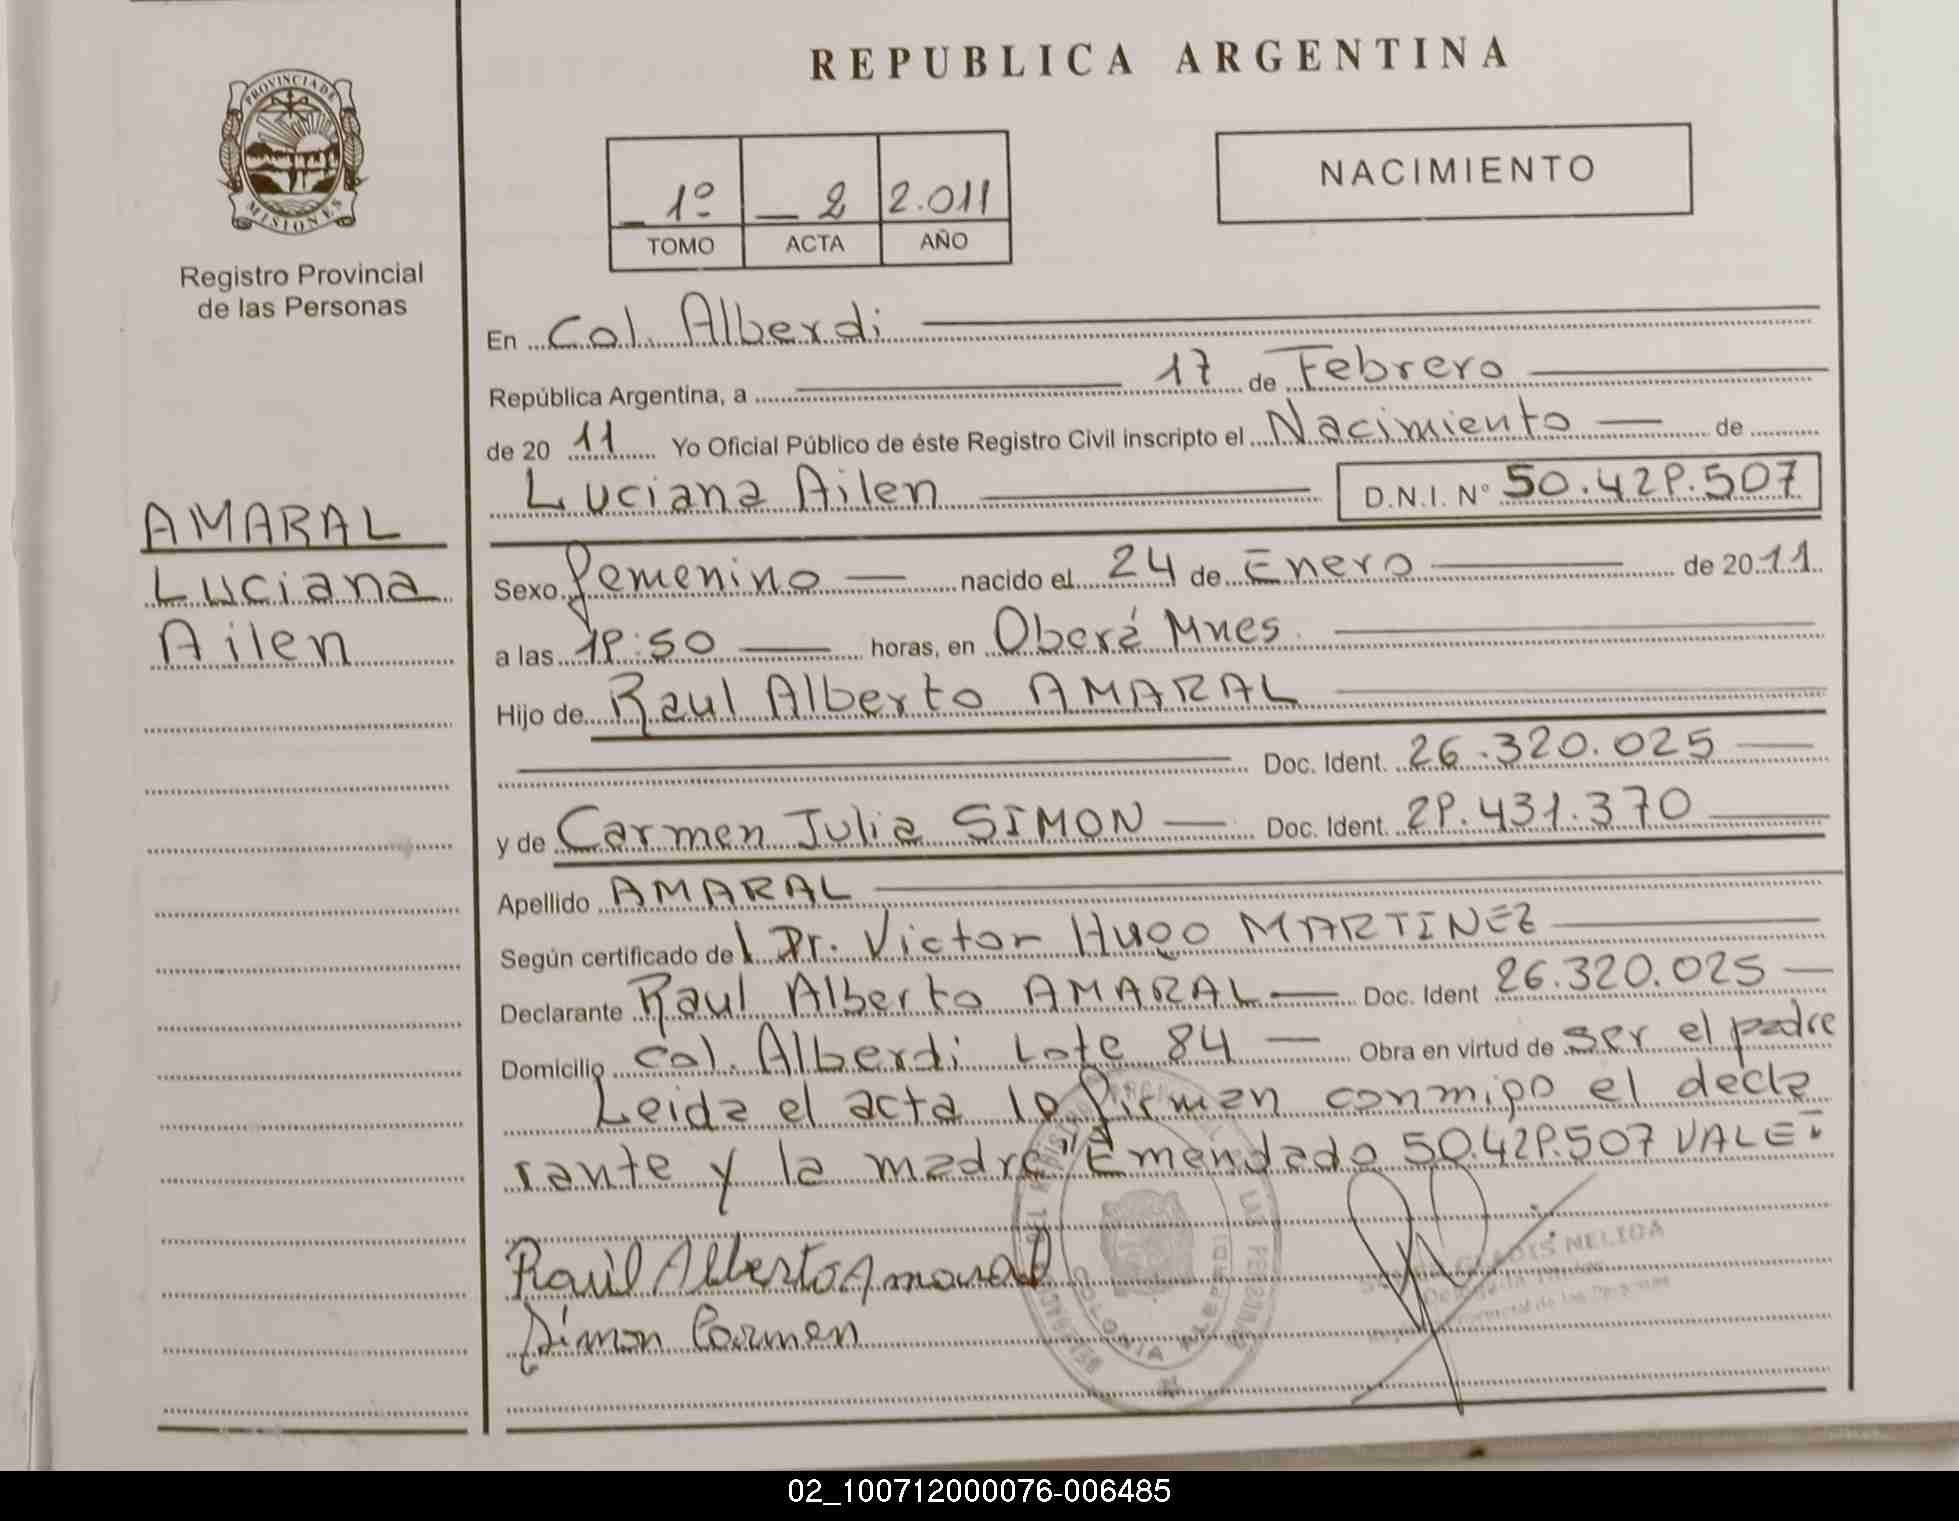 REPUBLICA ARGENTINA
PROVINCIA DE
MISIONES
Registro Provincial
de las Personas
1º 2 2.011
TOMO ACTA AÑO
NACIMIENTO
AMARAL
Luciana
Ailen
En Col. Alberdi
República Argentina, a 17 de Febrero
de 20 11 Yo Oficial Público de éste Registro Civil inscripto el Nacimiento de
Luciana Ailen D.N.I. Nº 50.429.507
Sexo Femenino nacido el 24 de Enero de 2011
a las 19:50 horas, en Oberá Mnes.
Hijo de Raul Alberto AMARAL
Doc. Ident. 26.320.025
y de Carmen Julia SIMON Doc. Ident. 29.431.370
Apellido AMARAL
Según certificado del Dr. Victor Hugo MARTINEZ
Declarante Raul Alberto AMARAL Doc. Ident 26.320.025
Domicilio Col. Alberdi Lote 84 Obra en virtud de ser el padre
Leida el acta lo firman conmigo el decla
rante y la madre "Emendado 50.429.507 VALE"
Raúl Alberto Amaral
Simon Carmen
COLONIA ALBERDI
LAS PERSONAS
GLADIS NELIDA
02_100712000076-006485